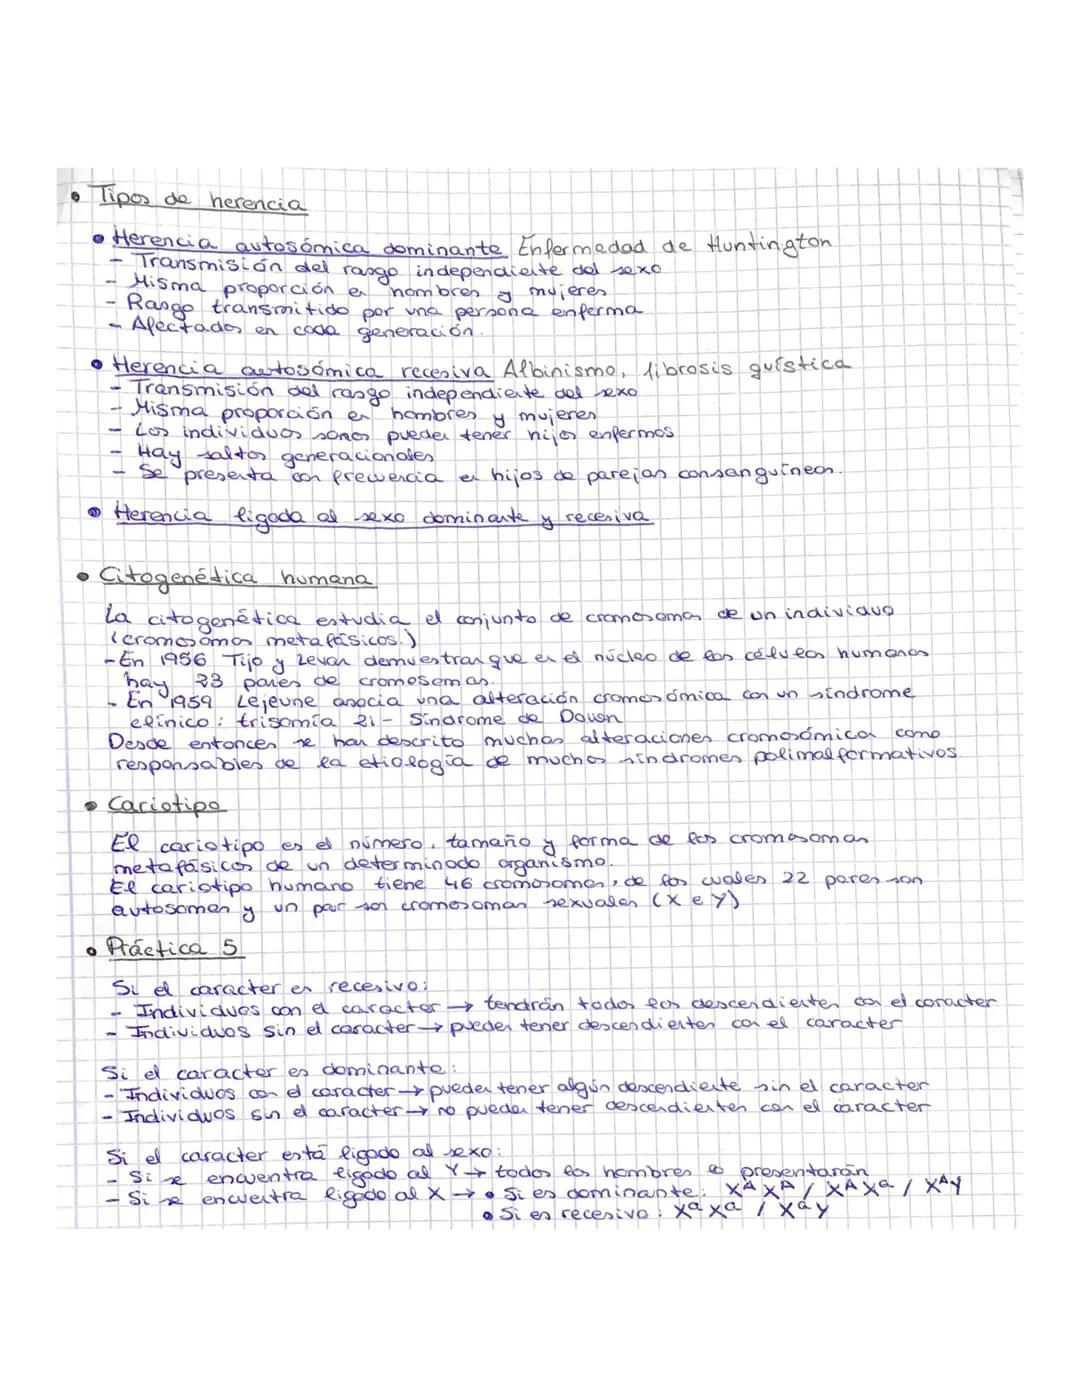 • Tipos de herencia
• Herencia autosómica dominante Enfermedad de Huntington
- Transmisión del rasgo independiente del sexo
- Misma proporción en hombres y mujeres
- Rasgo transmitido por una persona enferma
- Afectados en cada generación.
• Herencia autosómica recesiva Albinismo, fibrosis quística
- Transmisión del rasgo independiente del sexo
- Misma proporción en hombres y mujeres
- Los individuos sanos pueden tener hijos enfermos
- Hay saltos generacionales
- Se presenta con frecuencia en hijos de parejas consanguíneas.
• Herencia ligada al sexo dominante y recesiva
• Citogenética humana
La citogenética estudia el conjunto de cromosomas de un individuo
(cromosomas metafásicos.)
- En 1956 Tijo y Levan demuestran que en el núcleo de las células humanas
hay 23 pares de cromosemas.
- En 1959 Lejeune asocia una alteración cromosómica con un síndrome
clínico: trisomía 21 - Síndrome de Down
Desde entonces se han descrito muchas alteraciones cromosómica como
responsables de la etiología de muchos síndromes polimalformativos
• Cariotipo
El cariotipo es el número, tamaño y forma de los cromosomas
metafásicos de un determinado organismo.
El cariotipo humano tiene 46 cromosomas, de los cuales 22 pares son
autosomas y un par son cromosomas sexuales (X e Y)
• Práctica 5
Si el caracter es recesivo:
- Individuos con el caracter → tendrán todos los descendientes con el caracter
- Individuos sin el caracter → pueden tener descendientes con el caracter
Si el caracter es dominante:
- Individuos con el caracter → pueden tener algún descendiente sin el caracter
- Individuos sin el caracter → no pueden tener descendientes con el caracter
Si el caracter está ligado al sexo:
- Si se encuentra ligado al Y → todos los hombres lo presentarán
- Si se encuentra ligado al X → • Si es dominante: XᴬXᴬ / XᴬXᵃ / XᴬY
• Si es recesivo: XᵃXᵃ / XᵃY